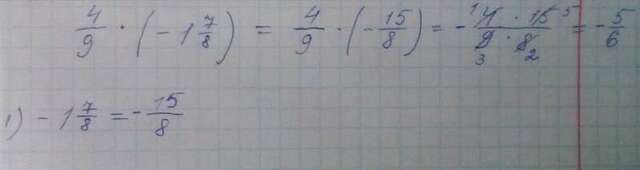 4/9 · (-1 7/8) = 4/9 · (-15/8) = - 1 4 · 15 5 / 3 9 · 8 2 = -5/6
1) -1 7/8 = -15/8